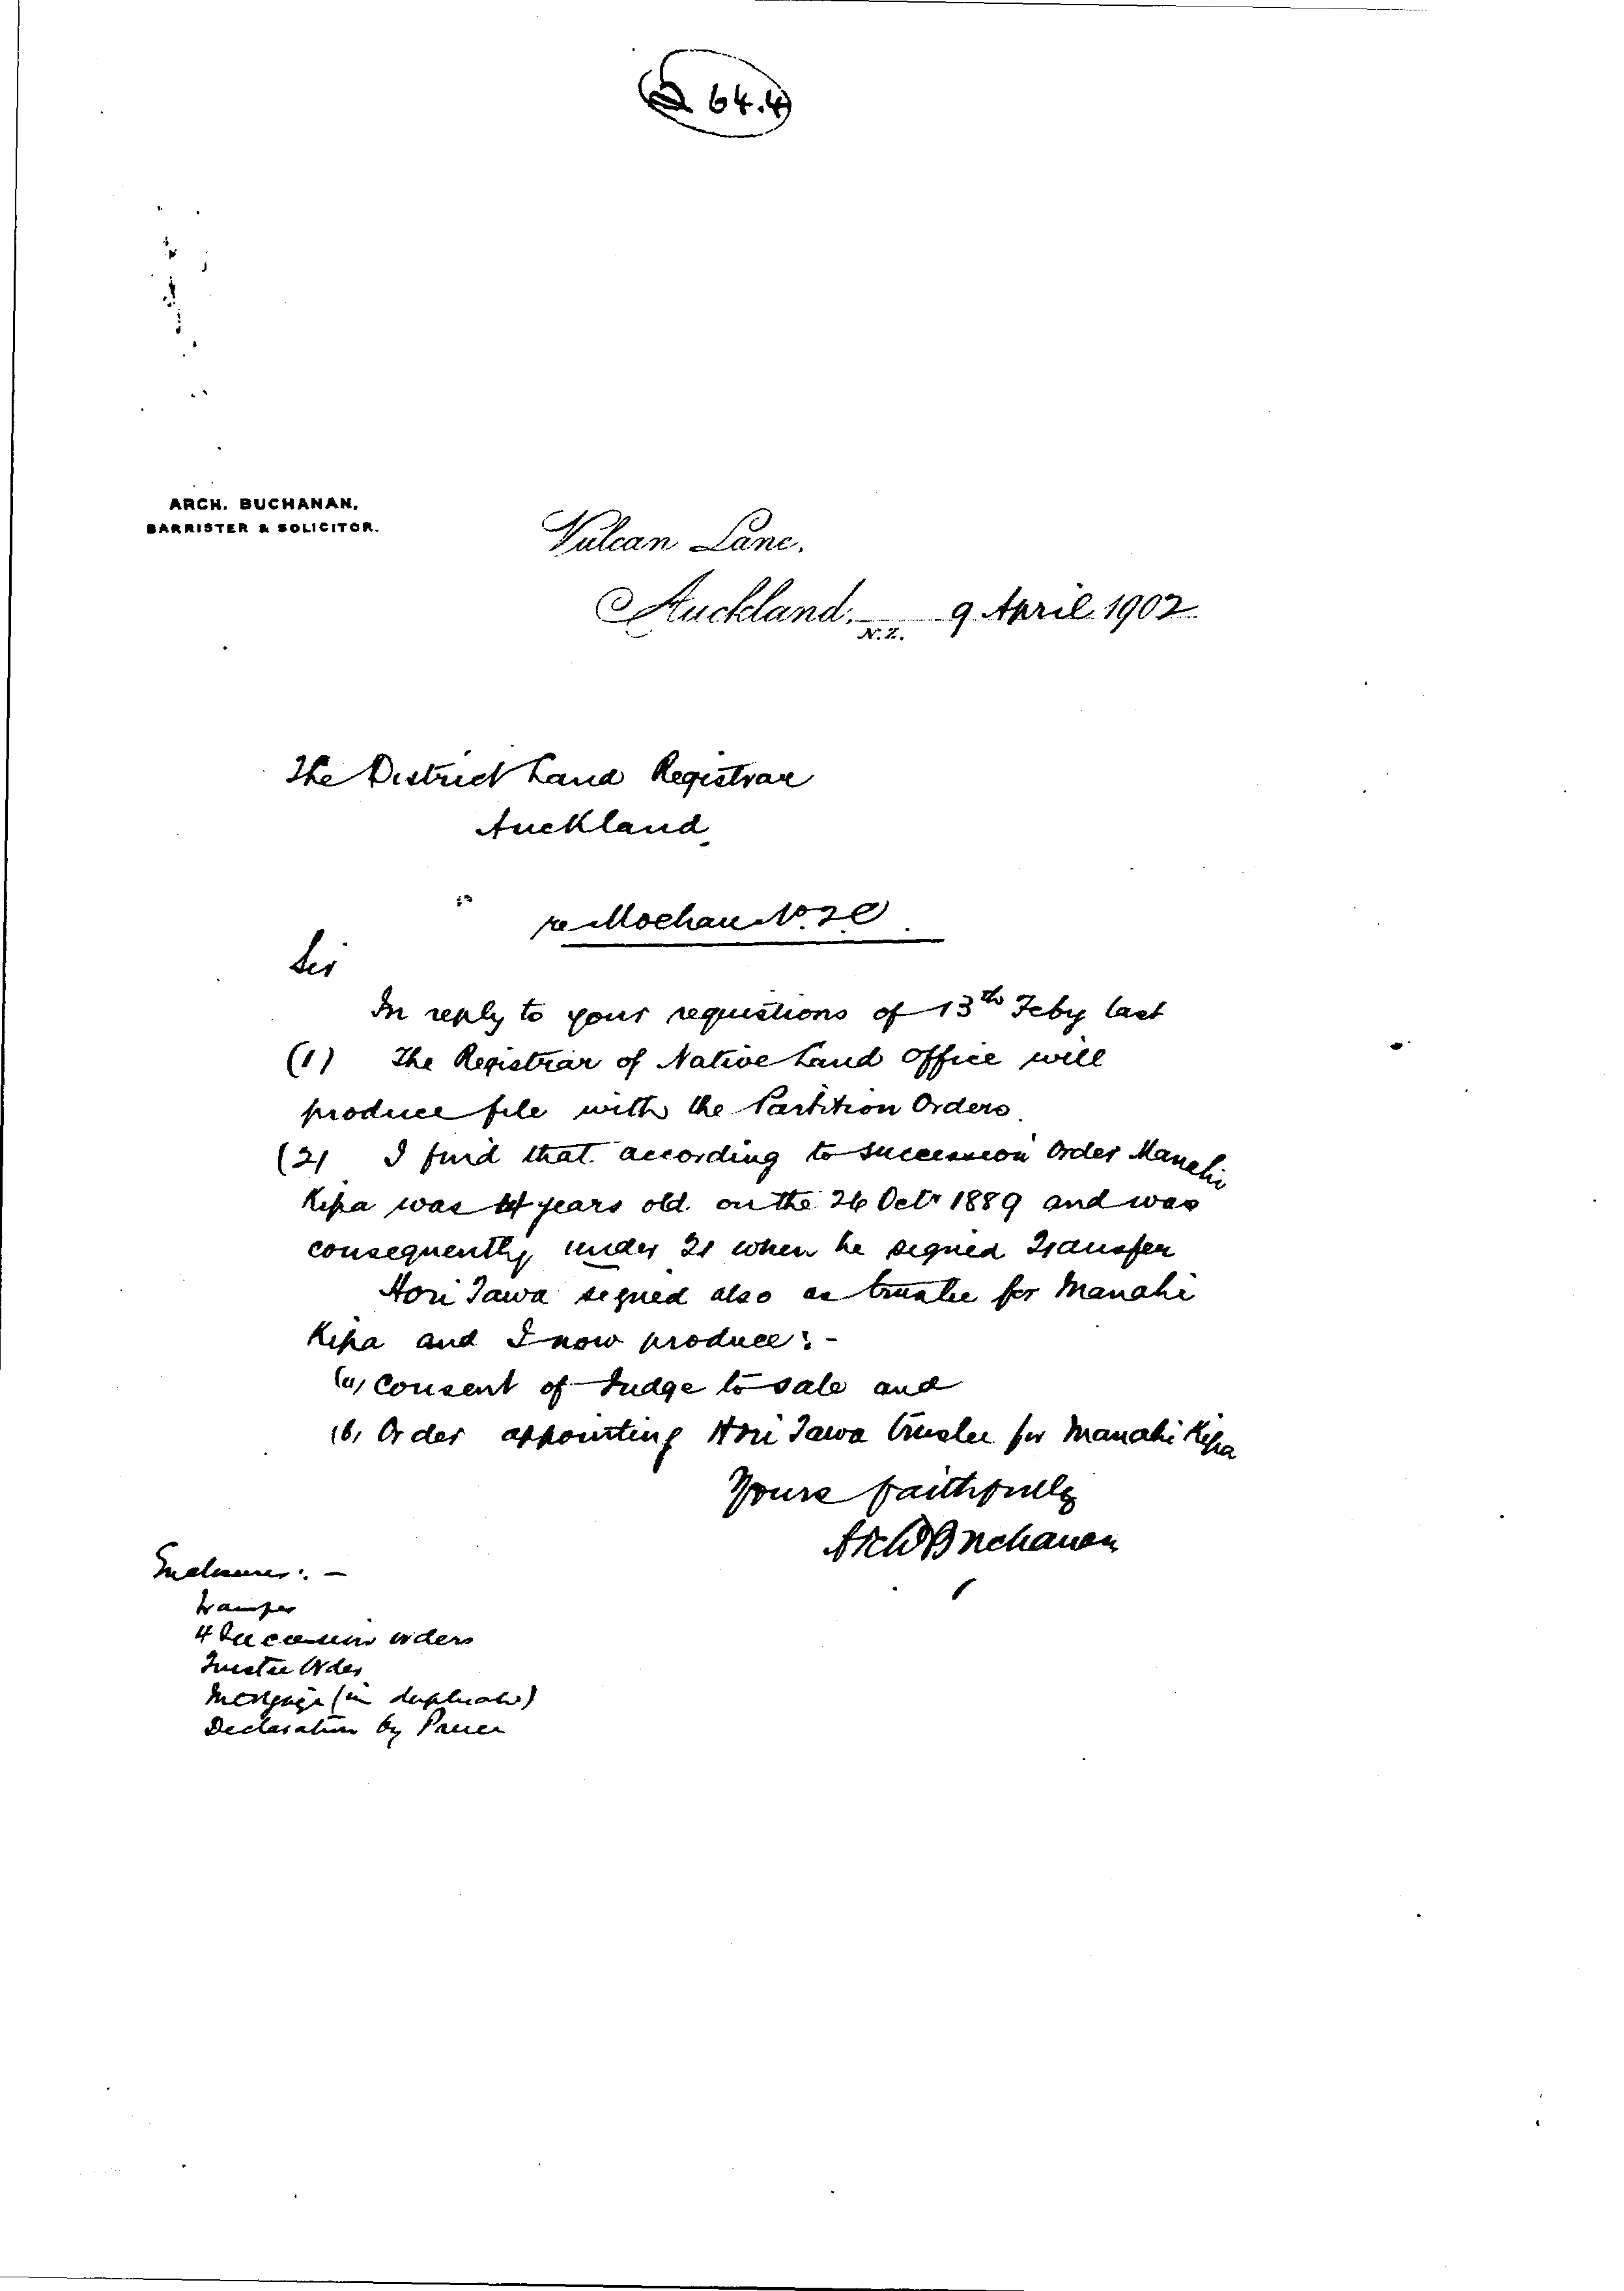 64.4
ARCH. BUCHANAN,
BARRISTER & SOLICITOR.
Vulcan Lane.
Auckland, N.Z. 9 April 1902
The District Land Registrar
Auckland
re Moehau No
Sir
In reply to your requisitions of 13th Feby last
(1) The Registrar of Native Land Office will
produce file with the Partition Orders.
(2) I find that according to succession Order Manahi
Kepa was years old on the 26 Octr 1889 and was
consequently under 21 when he signed Transfer
Hori Tawa signed also as trustee for Manahi
Kepa and I now produce: -
(a) Consent of Judge to sale and
(b) Order appointing Hori Tawa trustee for Manahi Kepa
Yours faithfully
Arch Buchanan
Enclosures: -
Transfer
4 Succession orders
Trustee Order
Mortgage (in duplicate)
Declaration by